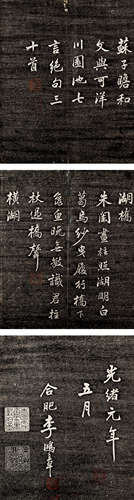 蘇子瞻和
文與可洋
川園池七
言絕句三
十首
湖橋
朱闌畫柱照湖明白
葛烏紗曳履行橋下
龜魚晚無數識君拄
杖過橋聲
橫湖
光緒元年
五月
合肥李鴻章